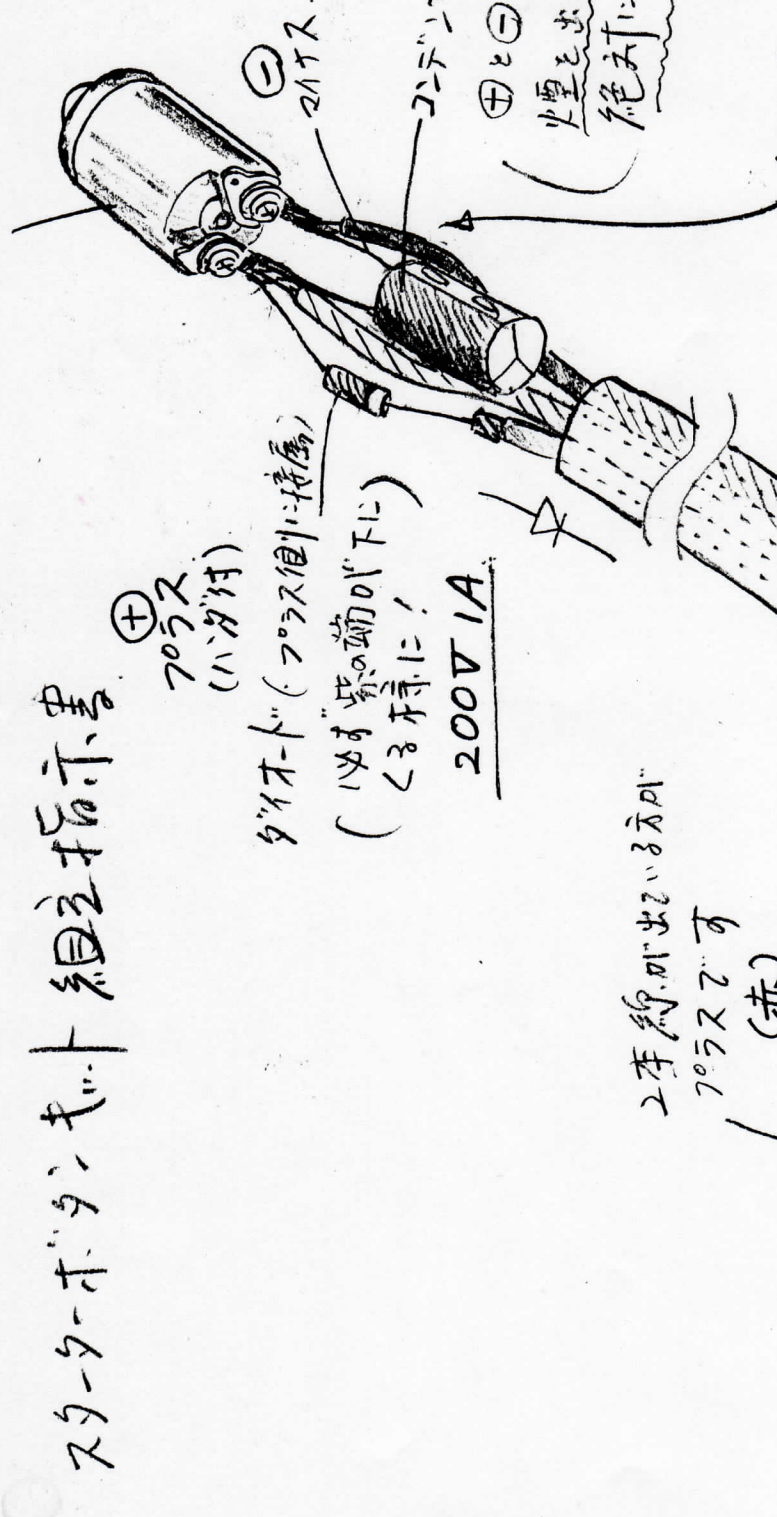 スターターボタンキット組立指示書
⊕
プラス
(ハンダ付)
ダイオード(プラス側に接属)
(必ず紫の筋が下に)
くる様に!
200V 1A
⊖
マイナス
コンデン
⊕と⊖
煙を出
絶対に
2本線が出ている方が
プラスです
(赤)